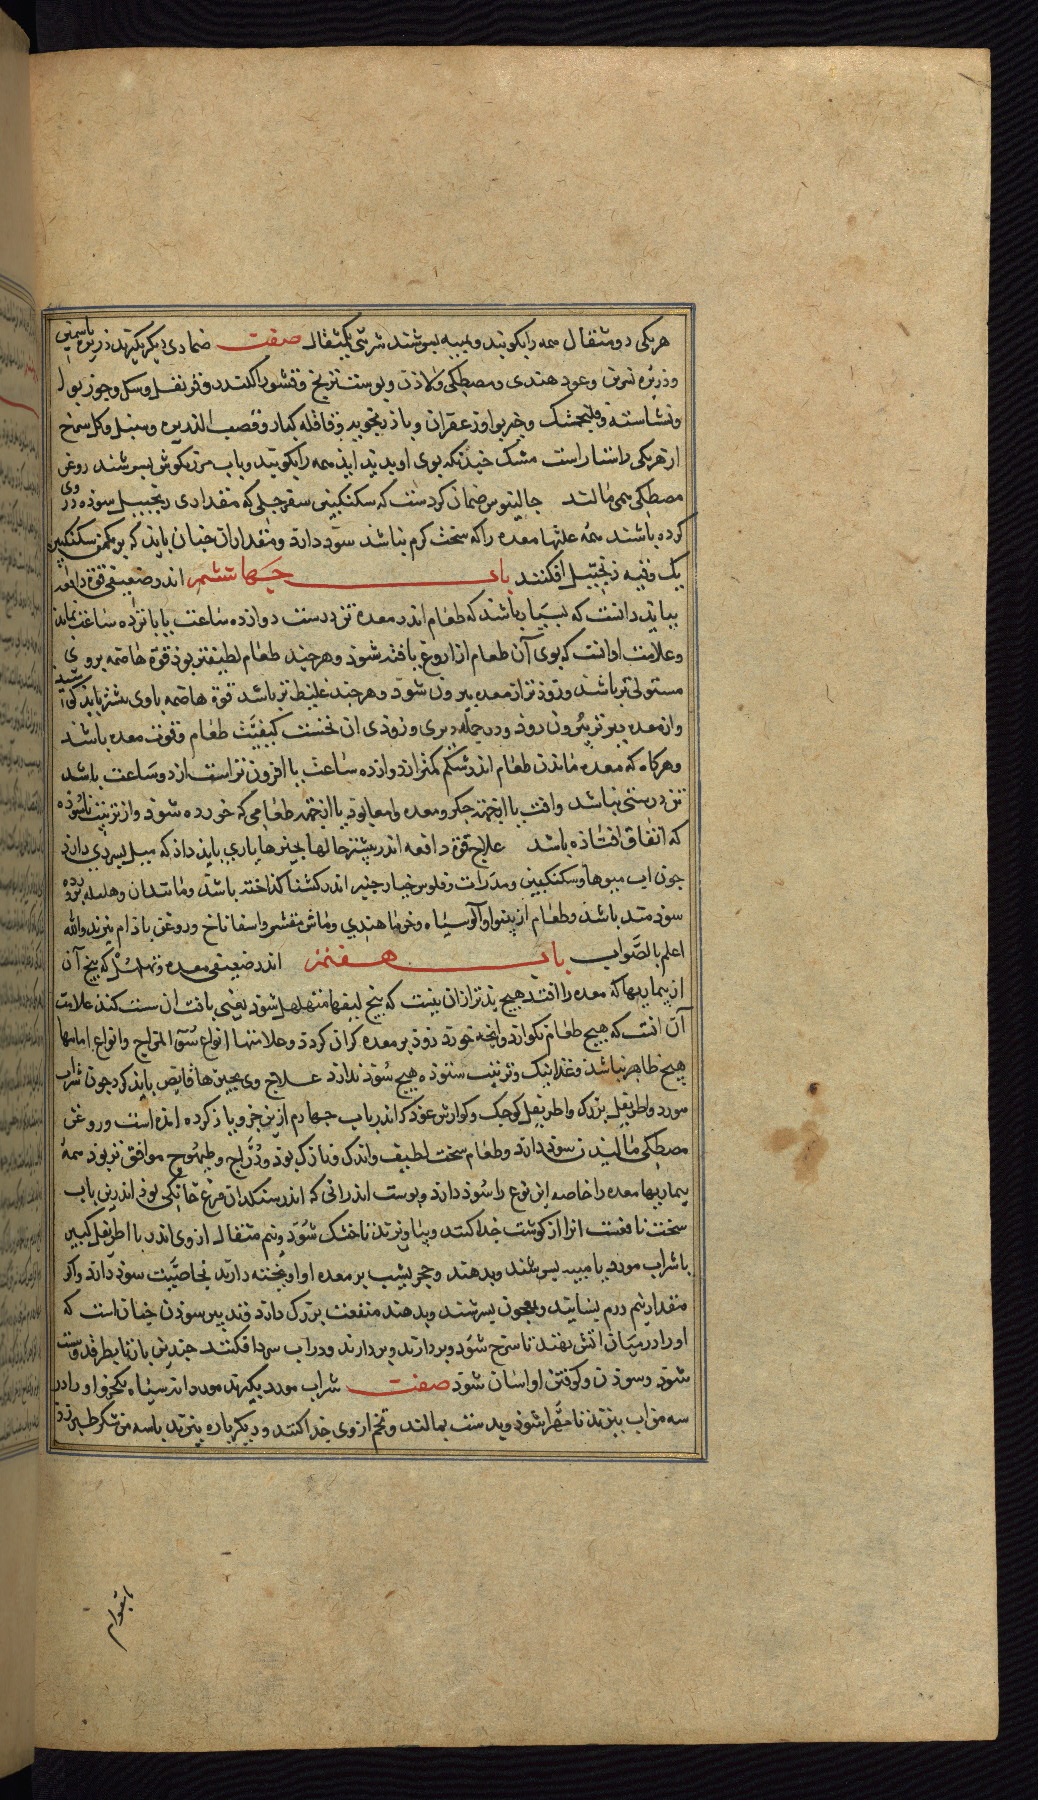 هریکی دو مثقال همه را بکوبند و بمیبه بسرشند شربتی یکمثقال صفت ضمادی دیگر بگیرند زریره یاسمنین
وزیره نسرین و عود هندی و مصطکی ولاذن و پوست ترنج و قشور الکندر و قرنفل و سک و جوزبوا
و نشاسته و فلنجمشک و خیربوا و زعفران و باذرنجویه و قاقله کبار و قصب الذریره و سنبل و کل سرخ
از هریکی راستاراست مشک چندانکه بوی او بدید آید همه را بکوبند و باب مرزنکوش بسرشند روغن
مصطکی همی مالند جالینوس ضمان کردست که سکنکبین سفرجلی که مقداری زنجبیل سوده در وی
کرده باشند همه علتها معده را که سخت کرم نباشد سوذ دارد و مقدار ان جنان بایذ که بر یکمن سکنکبین
یک وقیه زنجبیل افکنند باب جهار ششم اندر ضعیفی قوة دافعه
ببایذ دانست که بسیار باشذ که طعام اندر معده تن درست دوازده ساعت یا بانزده ساعت بماند
و علامت او انست که بوی آن طعام از اروغ یافته شوذ و هرجند طعام لطیفتر بوذ قوة هاضمه بر وی
مستولی تر باشذ و زوذتر از معده بیرون شوذ و هرجند غلیظ تر باشد قوة هاضمه با وی بیشتر بایذ کوشید
و از معده دیرتر بیرون روذ و در جمله دیری و زوذی ان نخست کیفیت طعام و قوت معده باشد
و هرکاه که معده ماندن طعام اندر شکم کمتر از دوازده ساعت یا افزون تر است از دو ساعت باشد
تن درستی نباشد و افت یا از جهة جکر و معده و امعا بوذ یا از جهة طعامی که خورده شوذ و از ترتیب ناستوده
که اتفاق افتاذه باشد علاج قوة دافعه اندر بیشتر حالها بجیزها یاری بایذ داذ که میل بسردی دارد
جون اب میوها و سکنکبین و مدرات و فلوس خیارجنبر اندر کشنا کداخته باشد و مانندان و هلیله پرورده
سوذمند باشد و طعام از بینو و الو سیاه و خرما هندی و ماش مقشر و اسفاناخ و روغن باذام بزند والله
اعلم بالصواب باب هفتم اندر ضعیفی معده و تهلهل که بیخ آن
از بیماریها که معده را افتد هیج بذتر از ان نیست که بیخ لیفها متهلهل شوذ یعنی بافت ان سست کند علامت
آن انست که هیج طعام نکوارد و انجه خورد زوذ بر معده کران کردد و علامتها انواع سوء المزاج و انواع اماسها
هیج ظاهر نباشد و غذا نیک و ترتیب ستوذه هیج سوذ ندارد علاج وی بجیزها قابض بایذ کرد جون شراب
مورد و اطریفل بزرک و اطریفل کوجک و کوارش عود که اندر باب جهارم از ین جزو یاذ کرده امذه است و روغن
مصطکی مالیدن سوذ دارد و طعام سخت لطیف و اندک و نازک بوذ و دراج و طیهوج موافق تر بوذ همه
بیماریها معده را خاصه این نوع را سوذ دارد و پوست اندرانی که اندر سنکدان مرغ خانکی بوذ اندرین باب
سخت نافعست انرا از کوشت جذا کنند و بیاویزند تا خشک شوذ و نیم مثقال از وی اندر با اطریفل کبیر
با شراب مورد یا میبه بسرشند و بدهند و حجر یشب بر معده او اویخته دارند بخاصیت سوذ دارد و اکر
مقدار نیم درم بسایند و بمعجون بسرشند و بدهند منفعت بزرک دارد و تدبیر سوذن جنان است که
او را در میان اتش نهند تا سرخ شوذ و بردارند و بردارند و در اب سرد افکنند جندین بار تا بطرقد و سست
شوذ و سوذن و کوفتن او اسان شوذ صفت شراب مورد بکیرند مورد دانه سیاه یکجزو او را در
سه من اب ببزند تا مهرا شوذ و بدست بمالند و تخم از وی جذا کنند و دیکر باره ببزند با سه من شکر طبرزد
بقوام